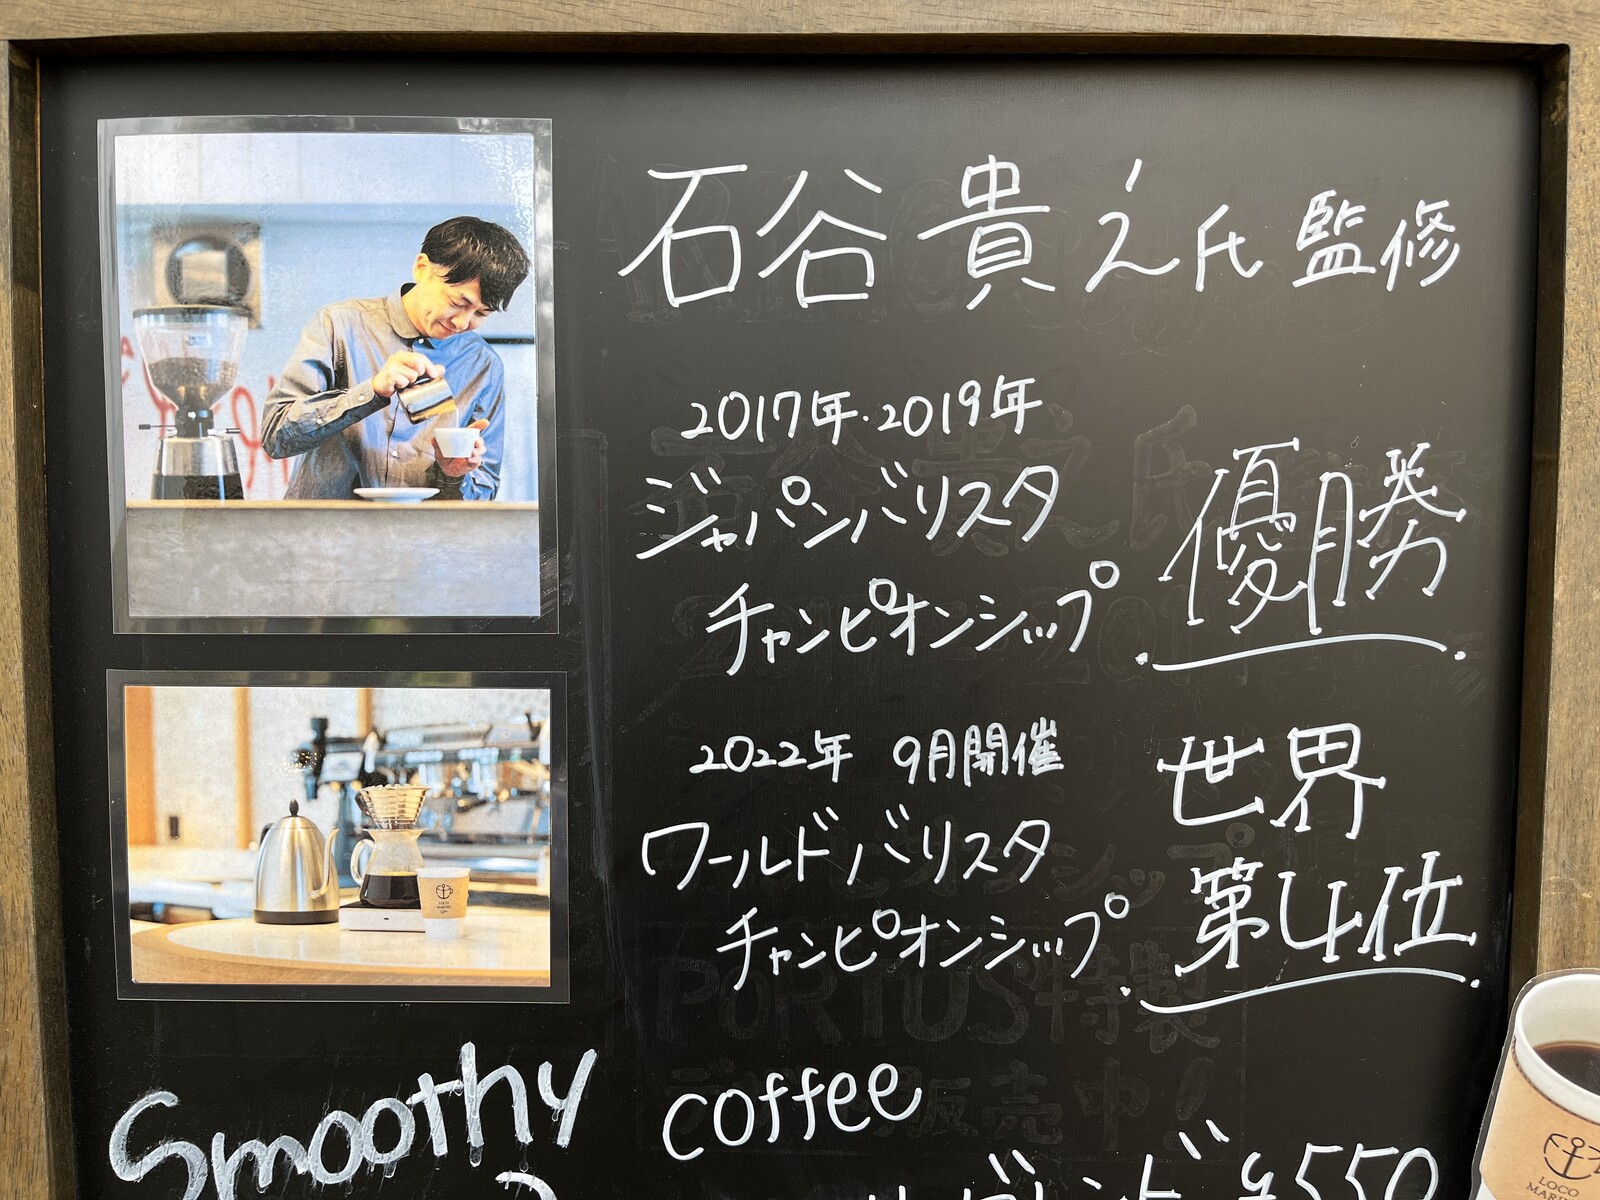 石谷貴え氏監修
2017年・2019年
ジャパンバリスタ
チャンピオンシップ
優勝
2022年 9月開催
ワールドバリスタ
チャンピオンシップ
世界
第4位
Smoothy
coffee
ブレンド ¥550
LOCO